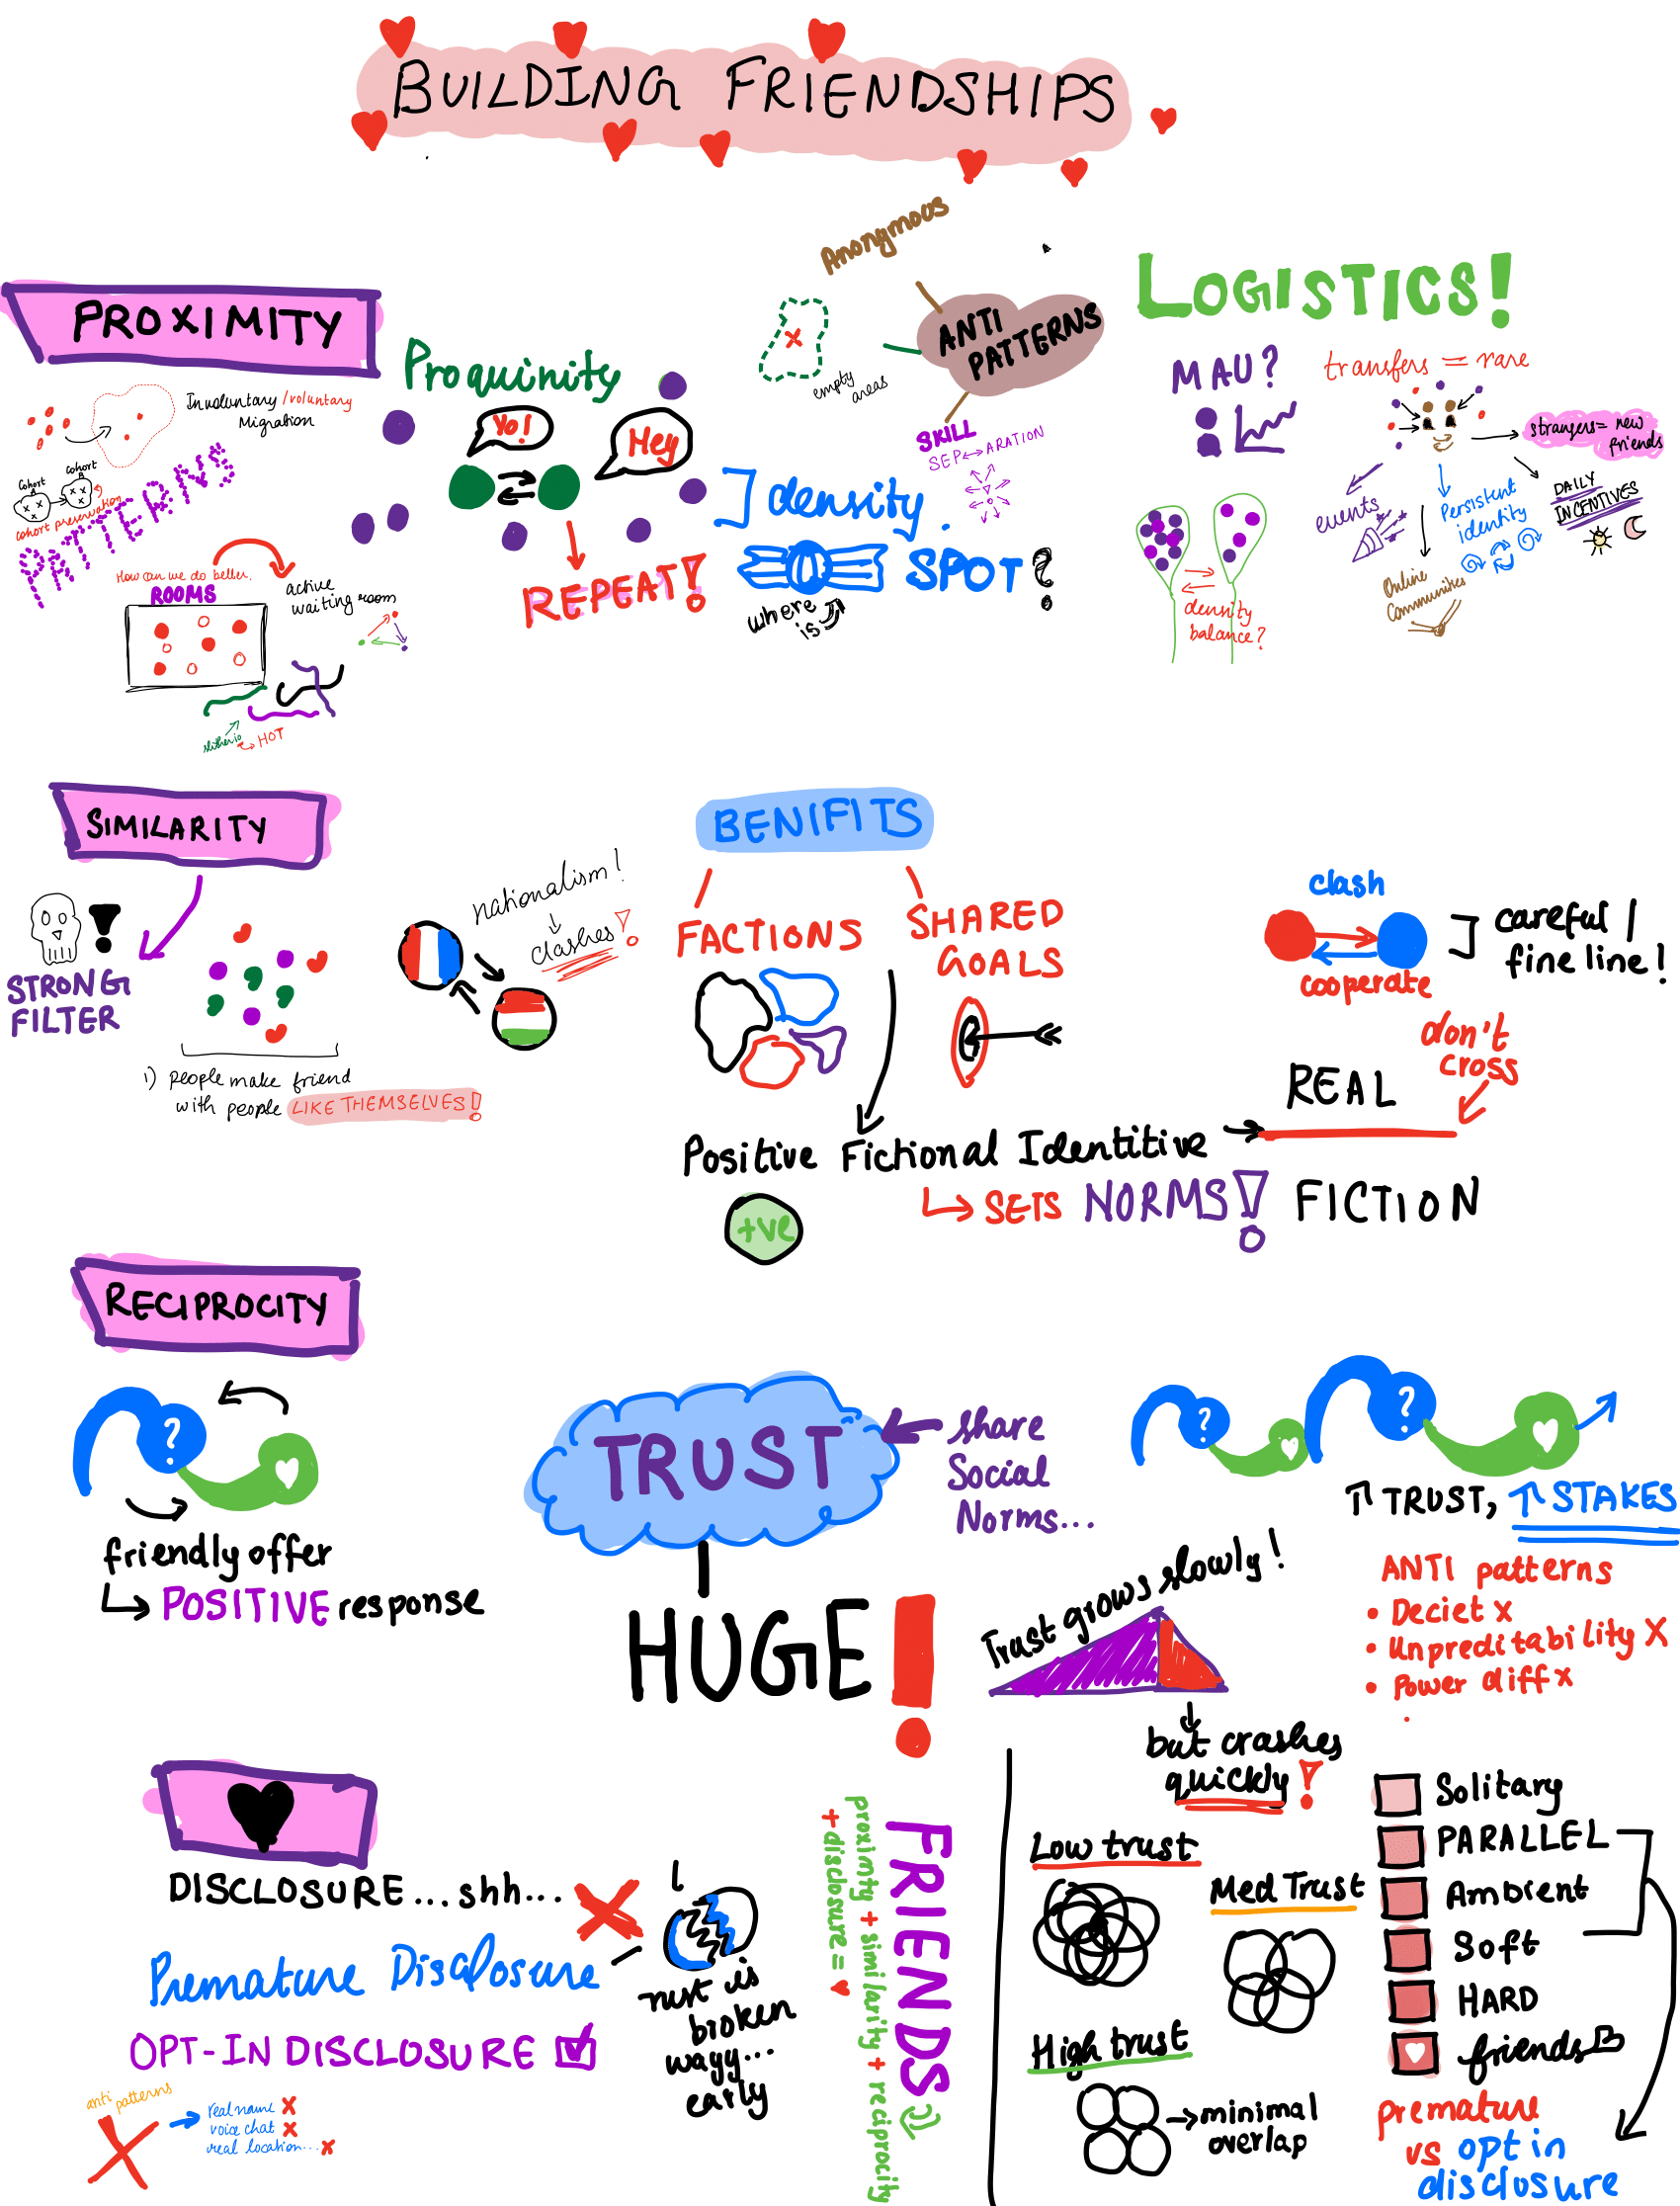 BUILDING FRIENDSHIPS
PROXIMITY
Involuntary /voluntary
Migration
cohort
cohort
cohort preservation
PATTERNS
How can we do better.
ROOMS
active
waiting room
slither.io
HOT
Proquinity
Yo!
Hey
REPEAT!
density.
SPOT?
where
is
Anonymous
ANTI
PATTERNS
empty
areas
SKILL
SEP ARATION
LOGISTICS!
MAU?
transfers = rare
strangers = new
friends
DAILY
INCENTIVES
Persistent
identity
events
Online
Communities
density
balance?
SIMILARITY
STRONG
FILTER
1) people make friend
with people LIKE THEMSELVES!
nationalism!
clashes!
BENIFITS
FACTIONS
SHARED
GOALS
clash
cooperate
careful /
fine line!
don't
cross
REAL
FICTION
Positive Fictional Identitive
+ve
SETS NORMS!
RECIPROCITY
?
friendly offer
POSITIVE response
TRUST
share
Social
Norms...
HUGE!
? ?
↑ TRUST, ↑ STAKES
Trust grows slowly!
but crashes
quickly!
ANTI patterns
• Deciet x
• unpreditability X
• Power diff x
DISCLOSURE ... shh...
Premature Disclosure
OPT-IN DISCLOSURE
anti patterns
real name X
voice chat X
real location... X
rust is
broken
wayy...
early
FRIENDS
proximity + similarity + reciprocity
+ disclosure = ♥
Low trust
Med Trust
High trust
minimal
overlap
Solitary
PARALLEL
Ambient
Soft
HARD
friends
premature
vs opt in
disclosure